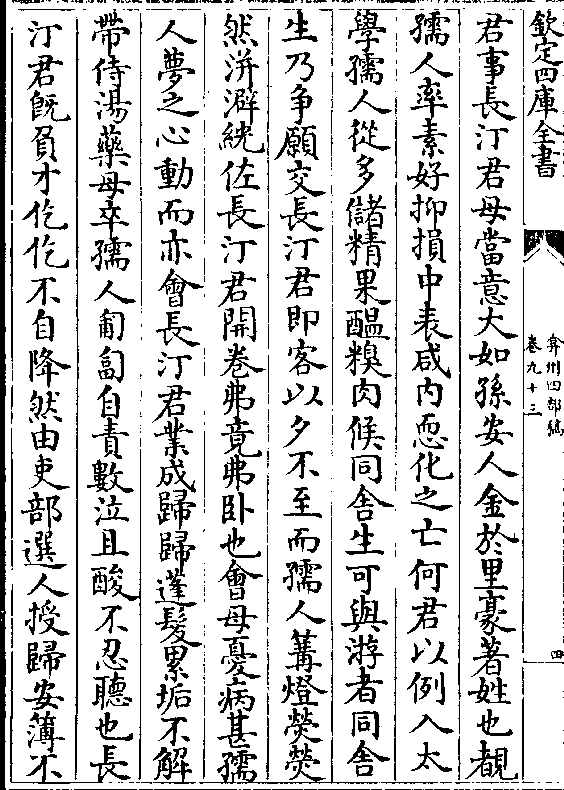 欽定四庫全書
弇州四部稿
卷九十三
四
君事長汀君母當意大如孫安人金於里豪著姓也覩
孺人率素好抑損中表咸内恧化之亡何君以例入太
學孺人從多儲精果醖糗肉候同舎生可與游者同舎
生乃争願交長汀君即客以夕不至而孺人篝燈熒熒
然洴澼絖佐長汀君開卷弗竟弗卧也會母憂病甚孺
人夢之心動而亦㑹長汀君業成歸歸蓬髪累垢不解
帶侍湯藥母卒孺人匍匐自責數泣且酸不忍聽也長
汀君旣負才仡仡不自降然由吏部選人授歸安簿不